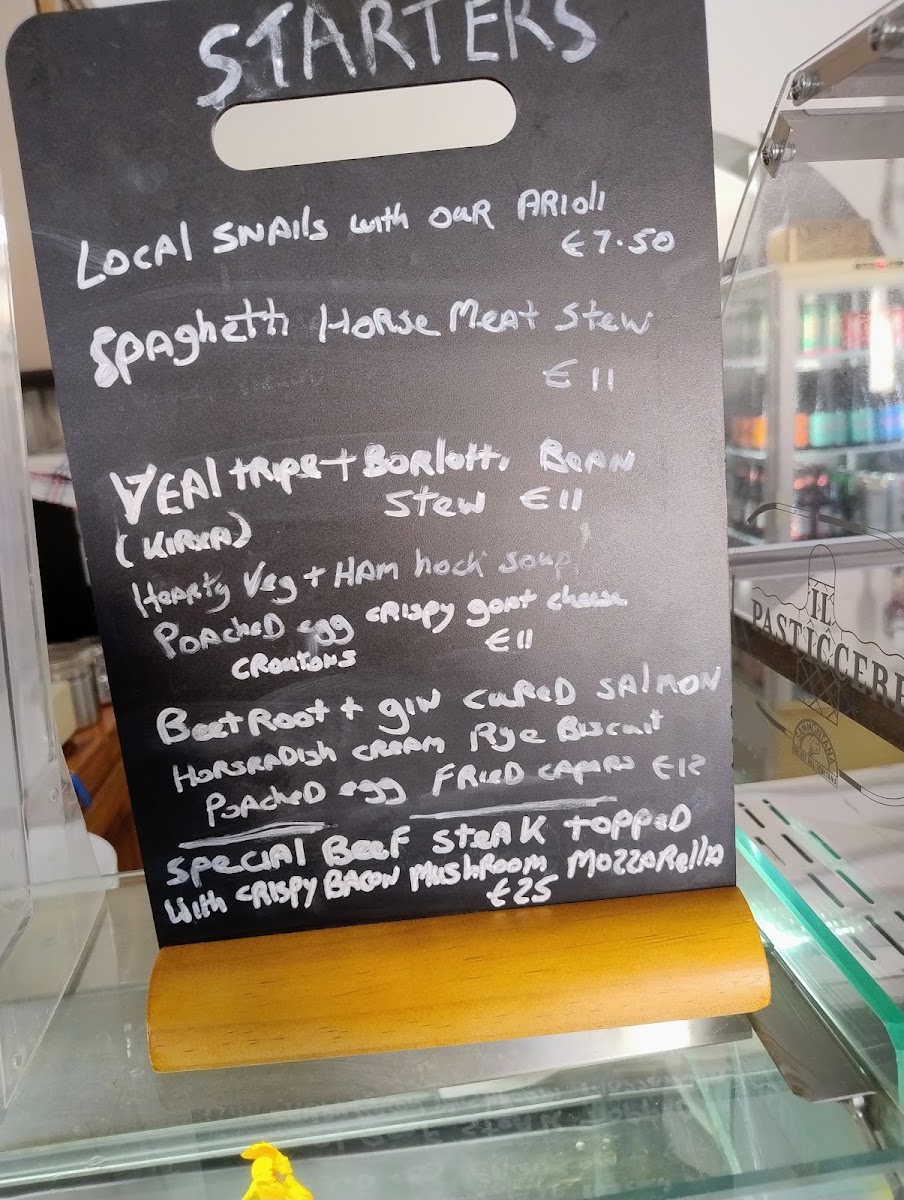 STARTERS
LOCAL SNAILS with OUR ARIOLI
€7.50
Spaghetti HORSE MEAT Stew
€11
VEAL TRIPE + BORLOTTI BEAN
Stew €11
(KIRXA)
HEARTY Veg + HAM hock soup
POACHED egg CRISPY goat cheese
CROUTONS €11
BEETROOT + gin CURED SALMON
HORSERADISH CREAM Rye BISCUIT
POACHED egg FRIED CAPERS €12
SPECIAL BEEF STEAK TOPPED
With CRISPY BACON MUSHROOM MOZZARELLA
€25
IL